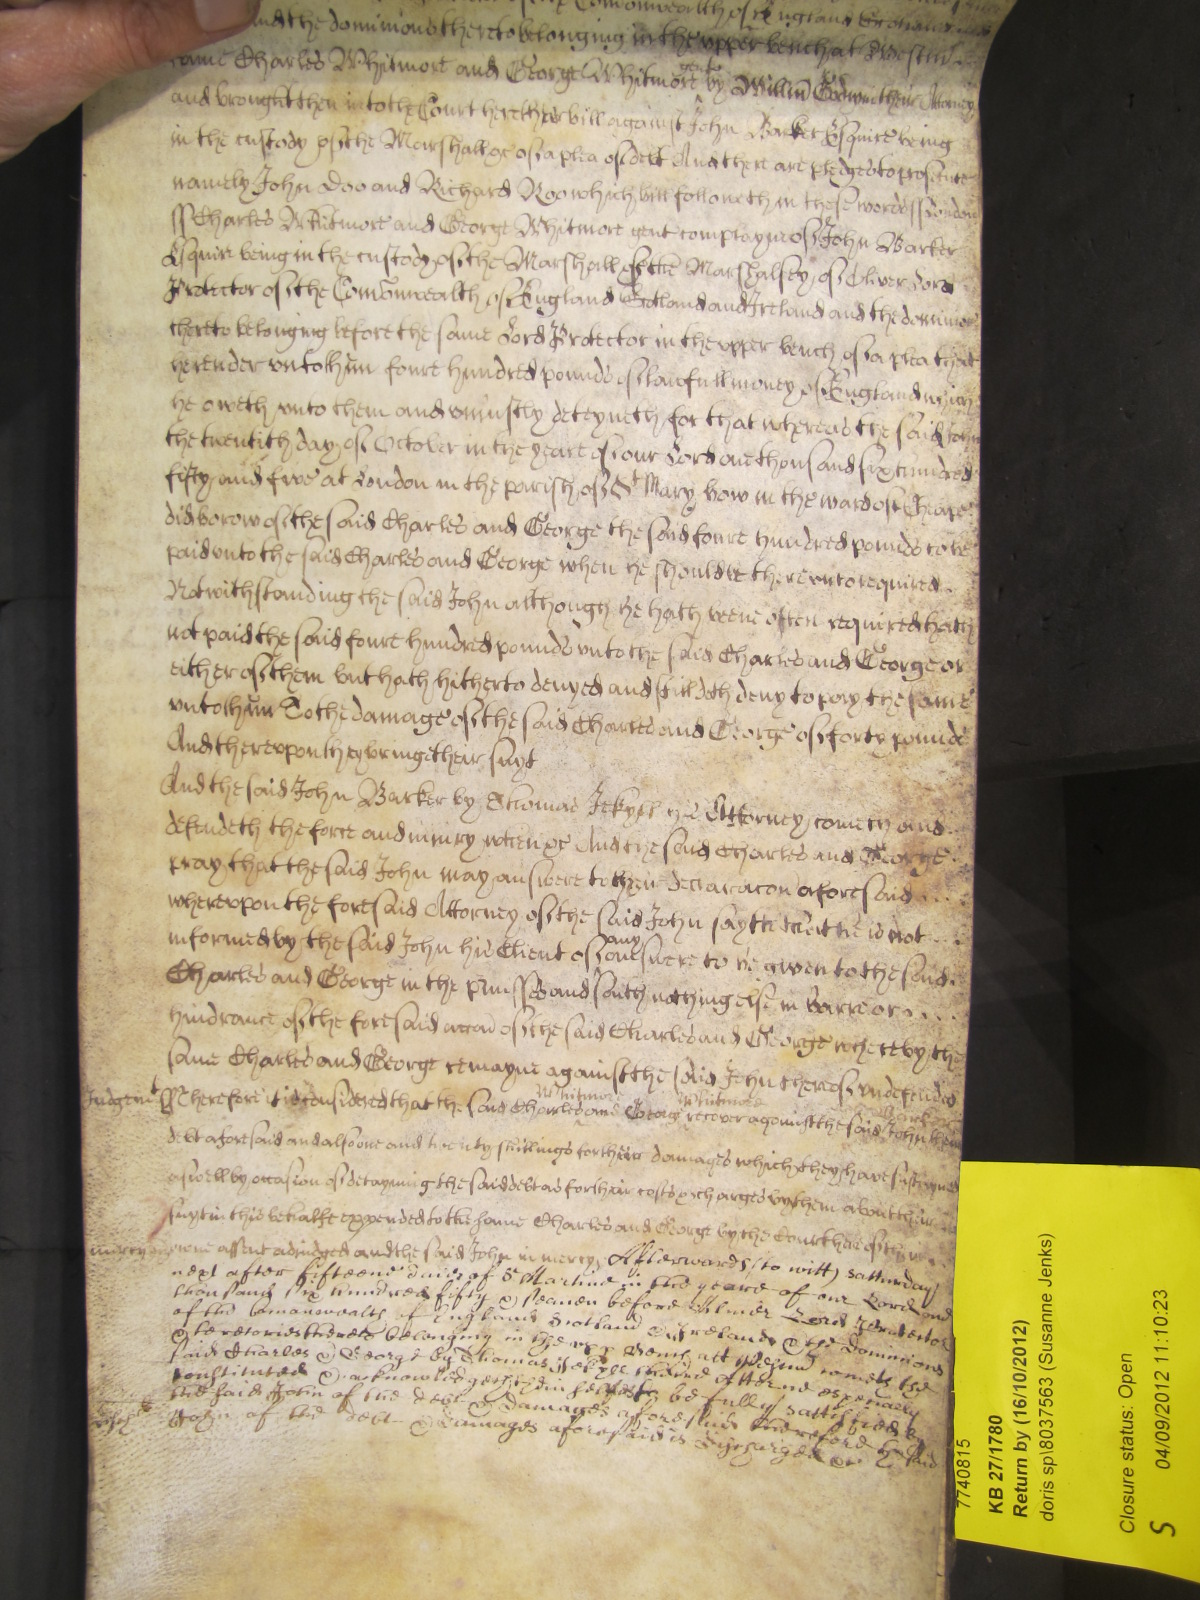 Commonwealth of England Scotland
and the dominions thereto belonging in the upper bench at Westm
came Charles Whitmore and George Whitmore gent by Willm Godwin their Attorney
and brought then into the Court here their bill against John Barker Esquire being
in the custody of the Marshall &c of a plea of debt And there are pledges to prosecute
namely John Doo and Richard Roo which bill followeth in these words ss London
ss Charles Whitmore and George Whitmore gent complayne of John Barker
Esquire being in the custody of the Marshall of the Marshalsey of Oliver Lord
Protector of the Comonwealth of England Scotland and Ireland and the dominions
thereto belonging before the same Lord Protector in the upper bench of a plea that
he render unto them foure hundred pounds of lawfull money of England which
he oweth unto them and uniustly deteyneth for that whereas the said John
the twentith day of October in the yeare of our Lord one thousand six hundred
fifty and five at London in the parish of St Mary bow in the ward of Cheape
did borow of the said Charles and George the said foure hundred pounds to be
paid unto the said Charles and George when he should be thereunto required
Notwithstanding the said John although he hath beene often required hath
not paid the said foure hundred pounds unto the said Charles and George or
either of them but hath hitherto denyed and still doth deny to pay the same
unto them To the damage of the said Charles and George of forty pounds
And thereupon they bringe their suyt
And the said John Barker by Thomas Jekyll his Attorney cometh and
defendeth the force and iniury when &c And the said Charles and George
pray that the said John may answere to their declaracon aforesaid
whereupon the foresaid Attorney of the said John sayth that he is not
informed by the said John his Client of any answere to be given to the said
Charles and George in the p'misses and saith nothing else in barre or
hindrance of the foresaid accon of the said Charles and George whereby the
same Charles and George remayne against the said John thereof undefended
Judgemt Therefore it is considered that the said Charles Whitmore and George Whitmore recover against the said John Barker their
debt aforesaid and also one and twenty shillings for their damages which they have susteyned
aswell by occasion of detayning the said debt as for their costs & charges by them about their
suyt in this behalfe expended to the same Charles and George by the Court here of their
mercy owne assent adiudged and the said John in mercy &c Afterwards (to witt) Satturday
next after fifteene daies of St Martine in the yeare of our Lord one
thousand six hundred fifty & seaven before Oliver Lord Protector
of the Comonwealth of England Scotland & Ireland & the Dominions
& teretories thereto belonging in the upp bench att Westm comes the
said Charles & George by Thomas Jekyll their Atturne especially
constituted & acknowledgeth them selves to be fully sattisfied by
the said John of the debt & damages afforesaid Therefore the said
disch John of the debt & damages aforesaid is discharged &c
7740815
KB 27/1780
Return by (16/10/2012)
doris sp\8037563 (Susanne Jenks)
Closure status: Open
04/09/2012 11:10:23
S